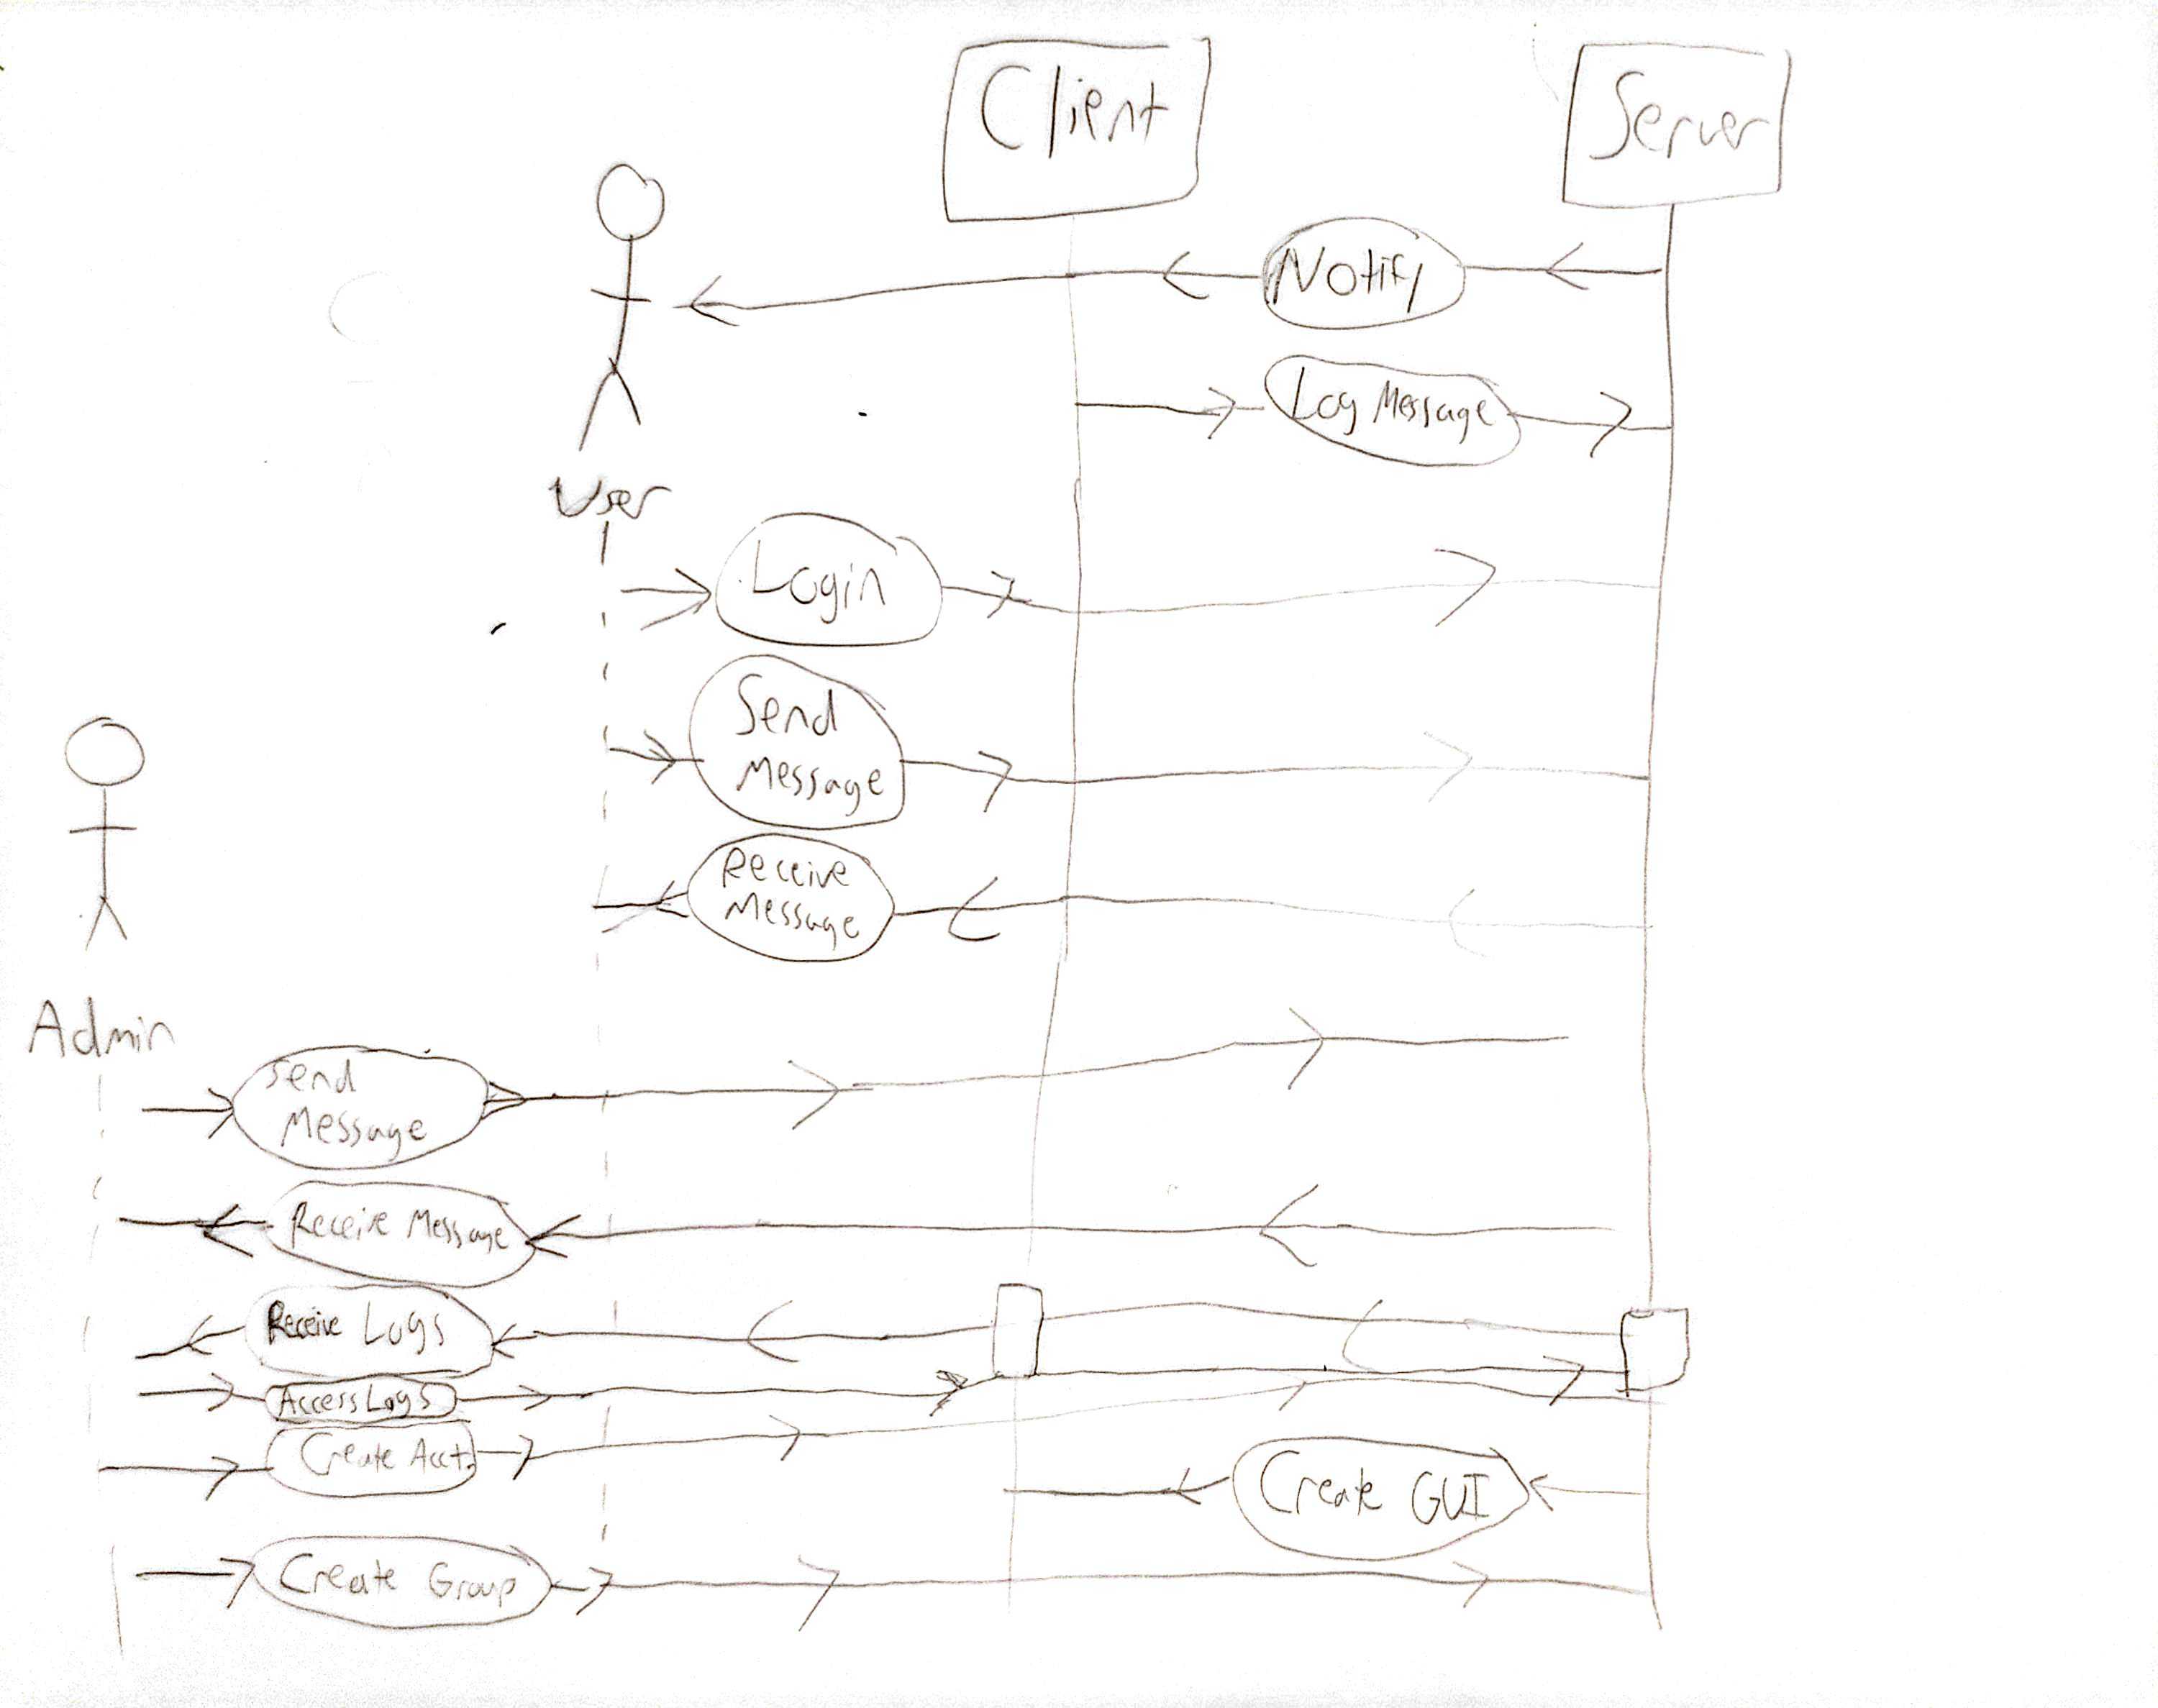 Client
Server
Notify
Log Message
User
Login
Send
Message
Receive
Message
Admin
Send
Message
Receive Message
Receive Logs
Access Logs
Create Acct.
Create GUI
Create Group